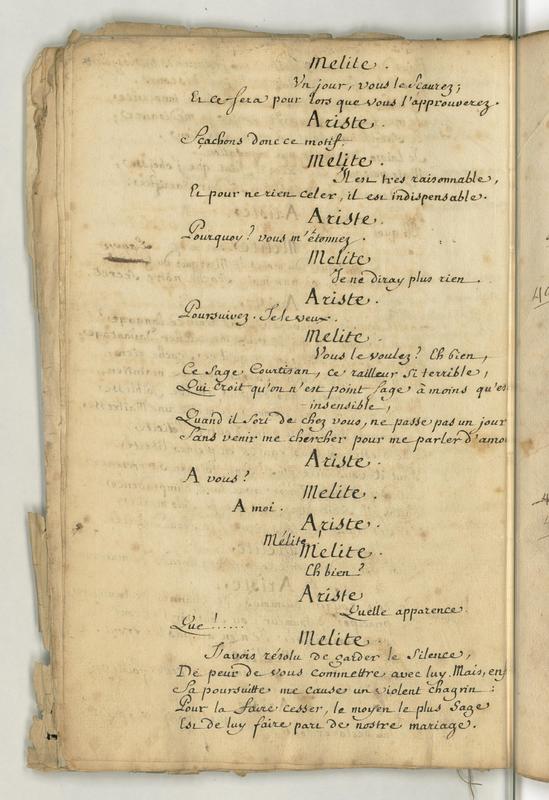 Melite.
Vn jour, vous le sçaurez;
Et ce sera pour lors que vous l'approuverez.
Ariste.
Sçachons donc ce motif.
Melite.
Il est tres raisonnable,
Et pour ne rien celer, il est indispensable.
Ariste.
Pourquoy? vous m'étonnez.
Melite
Je ne diray plus rien.
Ariste.
Poursuivez. Je le veux.
Melite.
Vous le voulez? Eh bien,
Ce sage Courtisan, ce railleur si terrible,
Qui croit qu'on n'est point sage à moins qu'es
insensible,
Quand il sort de chez vous, ne passe pas un jour
Sans venir me chercher pour me parler d'amo
Ariste.
A vous?
Melite.
A moi.
Ariste.
Mélite,
Melite.
Eh bien?
Ariste
Quelle apparence.
Que !......
Melite.
J'avois résolu de garder le silence,
De peur de vous commettre avec luy. Mais, enf
Sa poursuitte me cause un violent chagrin:
Pour la faire cesser, le moyen le plus sage
Est de luy faire part de nostre mariage.